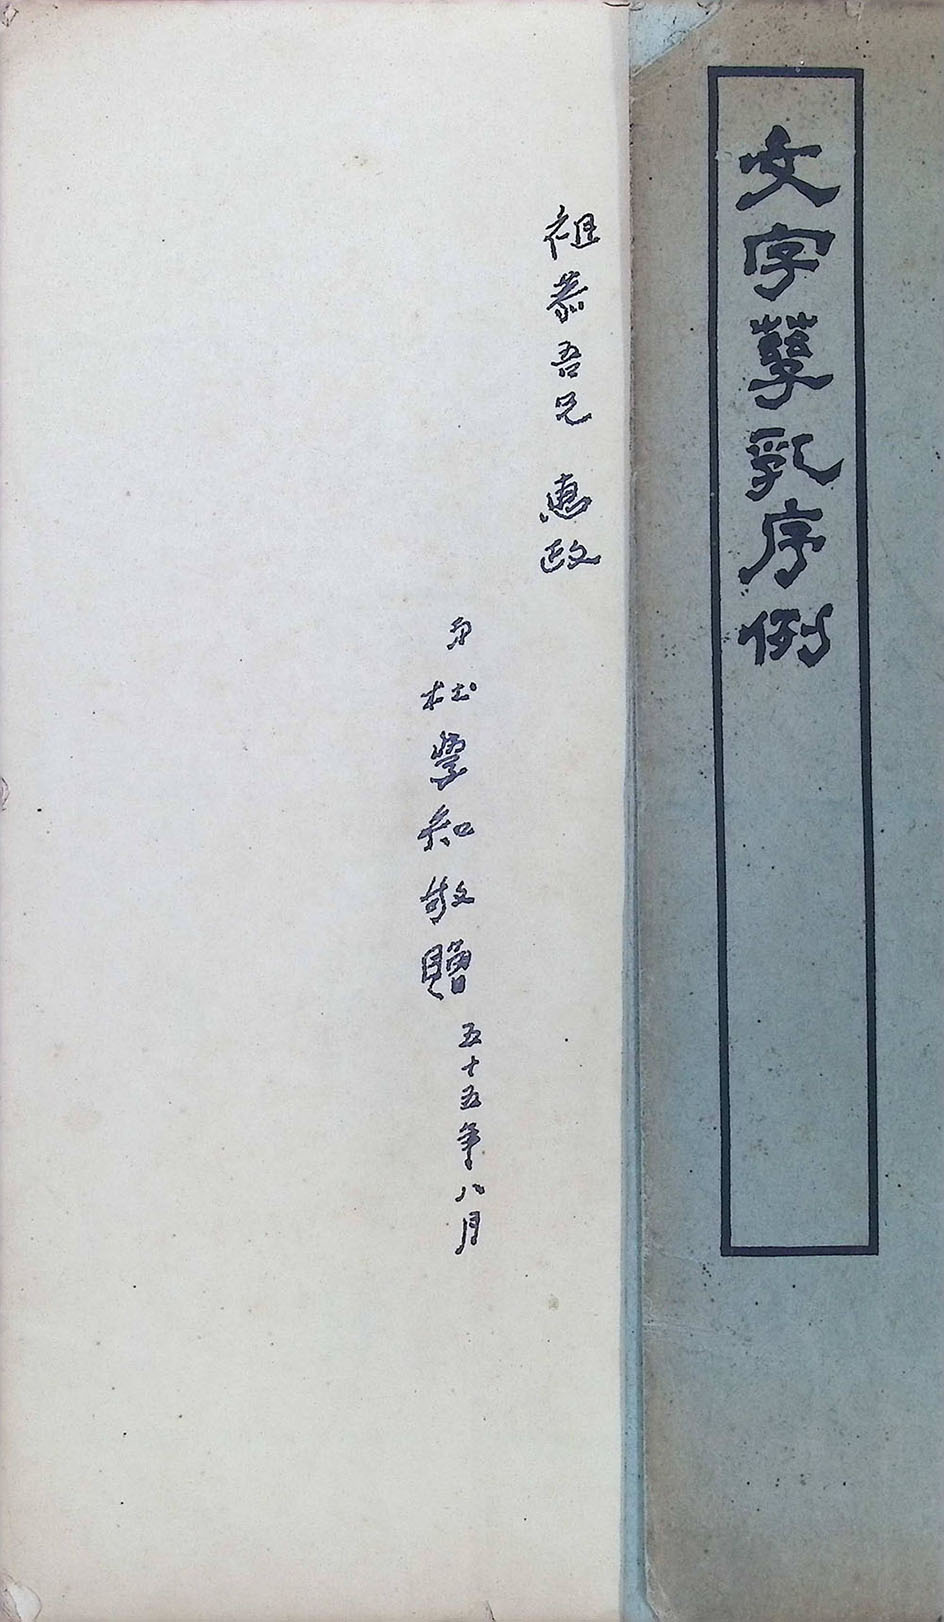 文字孳乳序例
祖恭吾兄 惠政
弟杜學知敬贈
五十五年八月